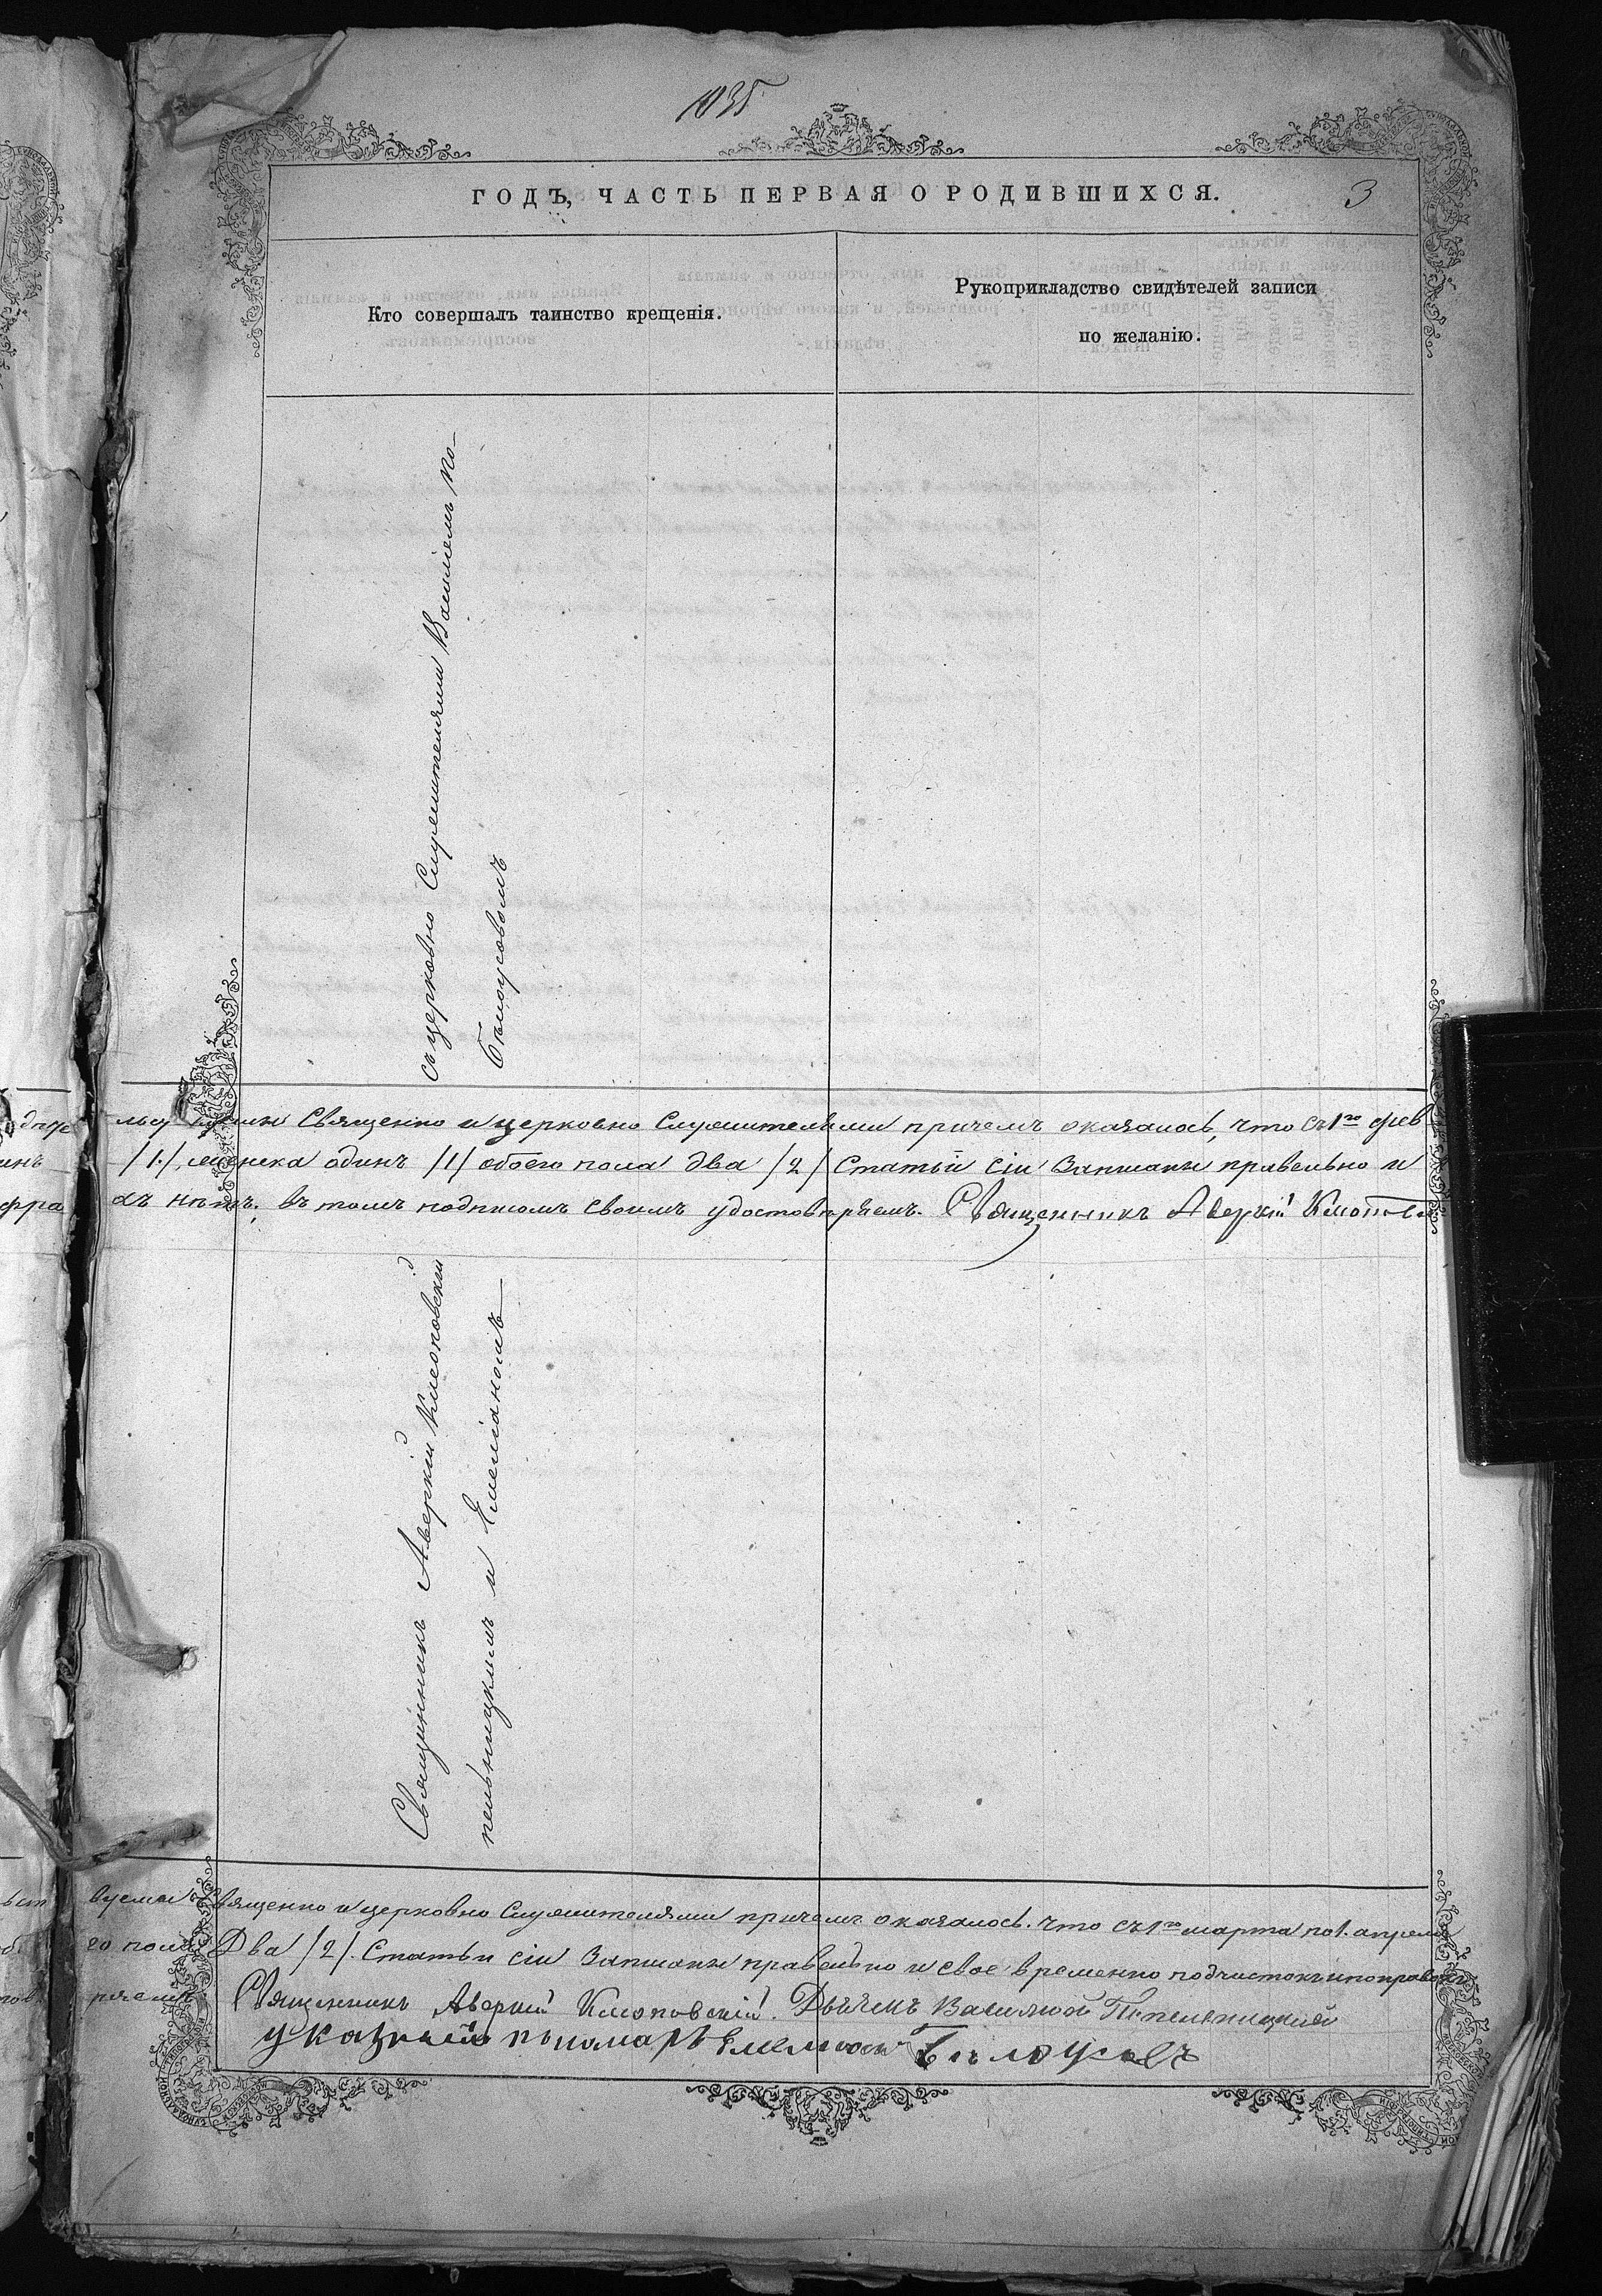 1035
ГОДЪ, ЧАСТЬ ПЕРВАЯ О РОДИВШИХСЯ.
3
Кто совершалъ таинство крещенія.
Рукоприкладство свидѣтелей записи
по желанію.
Священникъ Аверкій Клюповскій съ церковно Служителями Василіемъ По-
пельницкимъ и Емеліаномъ Бѣлоусовомъ
Священно и церковно Служителями причемъ оказалось, что съ 1го фев
/1/, женска одинъ /1/ обоего пола два /2/ Статьи сіи Записаны правельно и
нѣтъ. въ томъ подписомъ своимъ удостовѣряемъ. Священникъ Аверкій
вуемы Священно и церковно Служителями причемъ оказалось. что съ 1го марта по 1. апреля
го пола Два /2/. Статьи сіи Записаны правельно и свое временно подчистокъ и поправокъ
Священникъ Аверкій Клюповскій. Дьячекъ Василій Попельницкій
указный пономарь Емелиан Билоусовъ